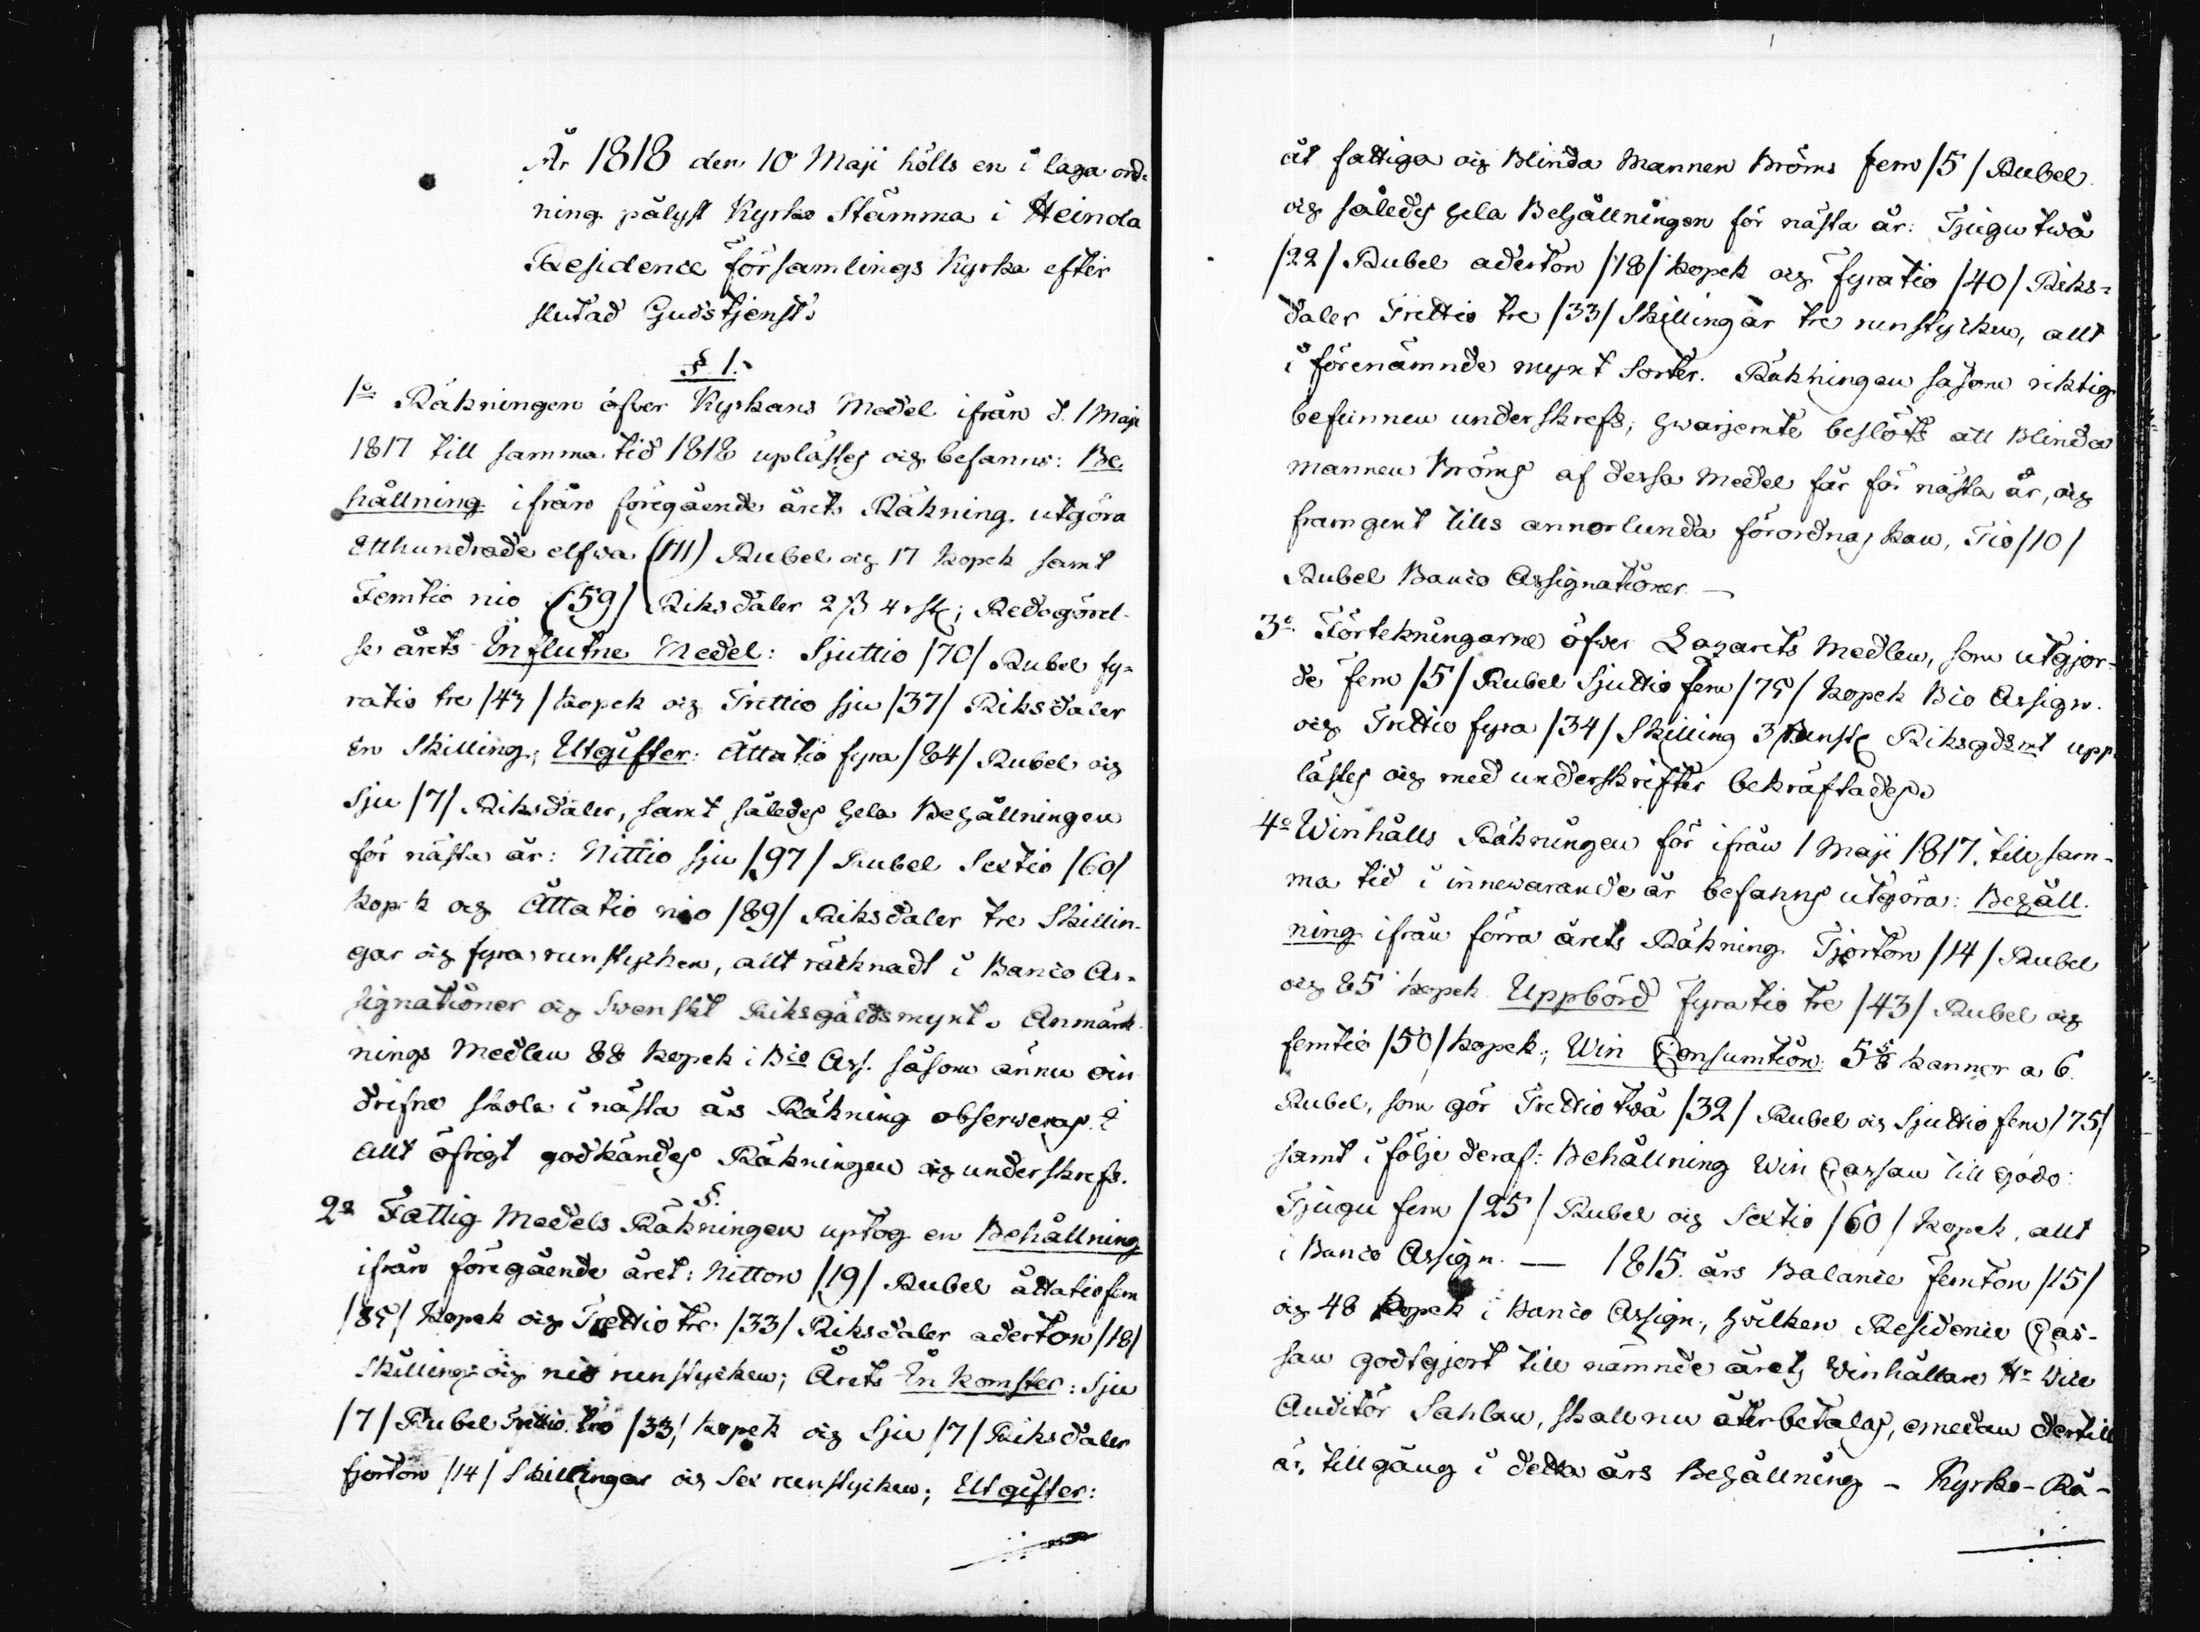 År 1818 den 10 Maji hölls en i laga ord-
ning pålyst Kyrko Stämma i Heinola
Residence församlings Kyrka efter
slutad Gudstjenst.
§ 1.
1o Räkningen öfver Kyrkans Medel ifrån d. 1 Maji
1817 till samma tid 1818 uplästes och befanns: Be-
hållning ifrån föregående årets Räkning utgöra
Etthundrade elfva (111) Rubel och 17 kopek samt
Femtio nio (59) Riksdaler 2 ß 4 rst; Redogörel-
se årets Influtne Medel: Sjuttio /70/ Rubel fy-
ratio tre /43/ kopek och Trettio sju /37/ Riksdaler
en Skilling; Utgifter: Åttatio fyra /84/ Rubel och
Sju /7/ Riksdaler, samt således hela Behållningen
för nästa år: Nittio sju /97/ Rubel Sextio /60/
kopek och Åttatio nio /89/ Riksdaler tre Skillin-
gar och fyra runstycken, allt räcknadt i Banco As-
signationer och Svenskt Riksgäldsmynt. Anmärk-
nings Medlen 88 kopek i Bco Ass. såsom ännu oin
drifne skola i nästa års Räkning observeras. I
allt öfrigt godkändes Räkningen och underskrefs.
§.
2o Fattig Medels Räkningen uptog en Behållning
ifrån föregående året: Nitton /19/ Rubel åttatio fem
/85/ kopek och Trettio tre /33/ Riksdaler aderton /18/
Skilling och nio runstycken; Årets Inkomster: Sju
/7/ Rubel Trettio tre /33/ kopek och Sju /7/ Riksdaler
fjorton /14/ Skillingar och Sex runstycken; Utgifter:
åt fattiga och Blinda Mannen Bröms fem /5/ Rubel
och således hela Behållningen för nästa år: Tjugu två
/22/ Rubel aderton /18/ kopek och fyratio /40/ Riks-
daler Trettio tre /33/ Skillingar tre runstycken, allt
i förenämnde mynt Sorter. Räkningen såsom riktig
befunnen underskrefs; hvarjemte beslöts att Blinda
mannen Bröms af dessa Medel får för nästa år, och
framgent tills annorlunda förordnas kan, Tio /10/
Rubel Banco Assignationer. —
3o Förtekningarne öfver Lazarets Medlen, som utgjor-
de fem /5/ Rubel Sjuttio fem /75/ kopek Bco Assign.
och Trettio fyra /34/ Skilling 3 runst Riksgdsmt upp-
lästes och med underskrifter bekräftades.
4o Winhålls Räkningen för ifrån 1 Maji 1817. till sam-
ma tid i innevarande år befanns utgöra: Behåll-
ning ifrån förra årets Räkning Fjorton /14/ Rubel
och 85 kopek Uppbörd fyratio tre /43/ Rubel och
femtio /50/ kopek; Win Consumtion: 5 5/8 kannor a 6.
Rubel, som gör Trettio två /32/ Rubel och Sjuttio fem /75/
samt i följe deraf: Behållning Win Cassan till godo:
Tjugu fem /25/ Rubel och Sextio /60/ kopek, allt
i Banco Assign. — 1815. års Balance femton /15/
och 48 kopek i Banco Assign., hvilken Residence Cas-
san godtgjort till nämnde årets Winhållare Hr Vice
Auditör Sahlan, skall nu återbetalas, emedan dertill
är tillgång i detta års Behållning – Kyrko-Rå-